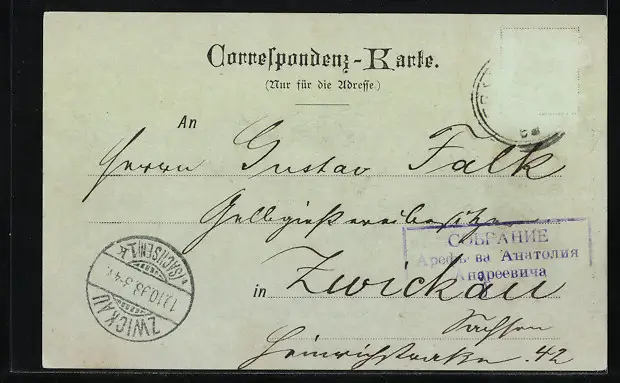 Correspondenz-Karte.
(Nur für die Adresse)
An
Herrn Gustav Falk
Gelbgießereibesitzer
in Zwickau
Sachsen
Heinrichstraße 42
СОБРАНИЕ
Анатолия
Андреевича
ZWICKAU
(SACHSEN) 1.